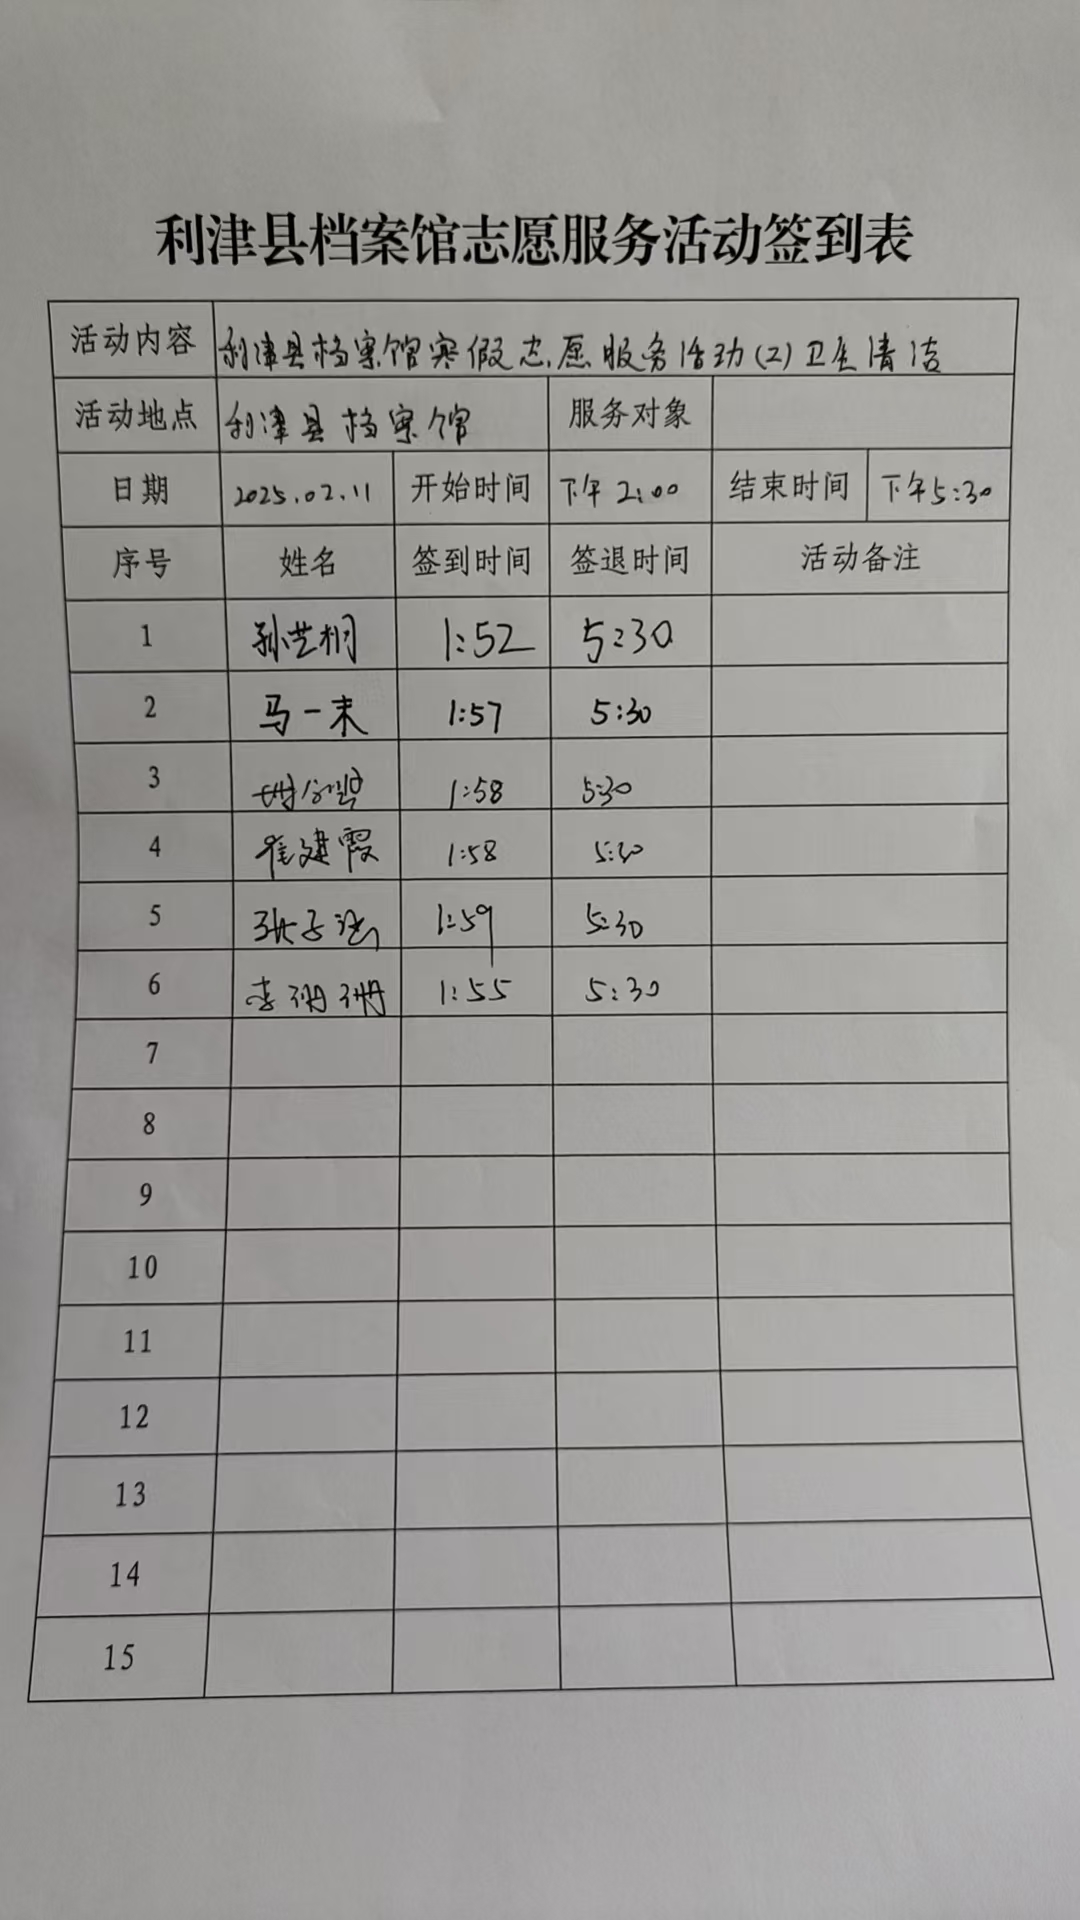 利津县档案馆志愿服务活动签到表
活动内容 利津县档案馆寒假志愿服务活动(2)卫生清洁
活动地点 利津县档案馆 服务对象
日期 2025.02.11 开始时间 下午2:00 结束时间 下午5:30
序号 姓名 签到时间 签退时间 活动备注
1 孙艺桐 1:52 5:30
2 马一末 1:57 5:30
3 1:58 5:30
4 崔建霞 1:58 5:30
5 张子涵 1:59 5:30
6 李珊珊 1:55 5:30
7
8
9
10
11
12
13
14
15